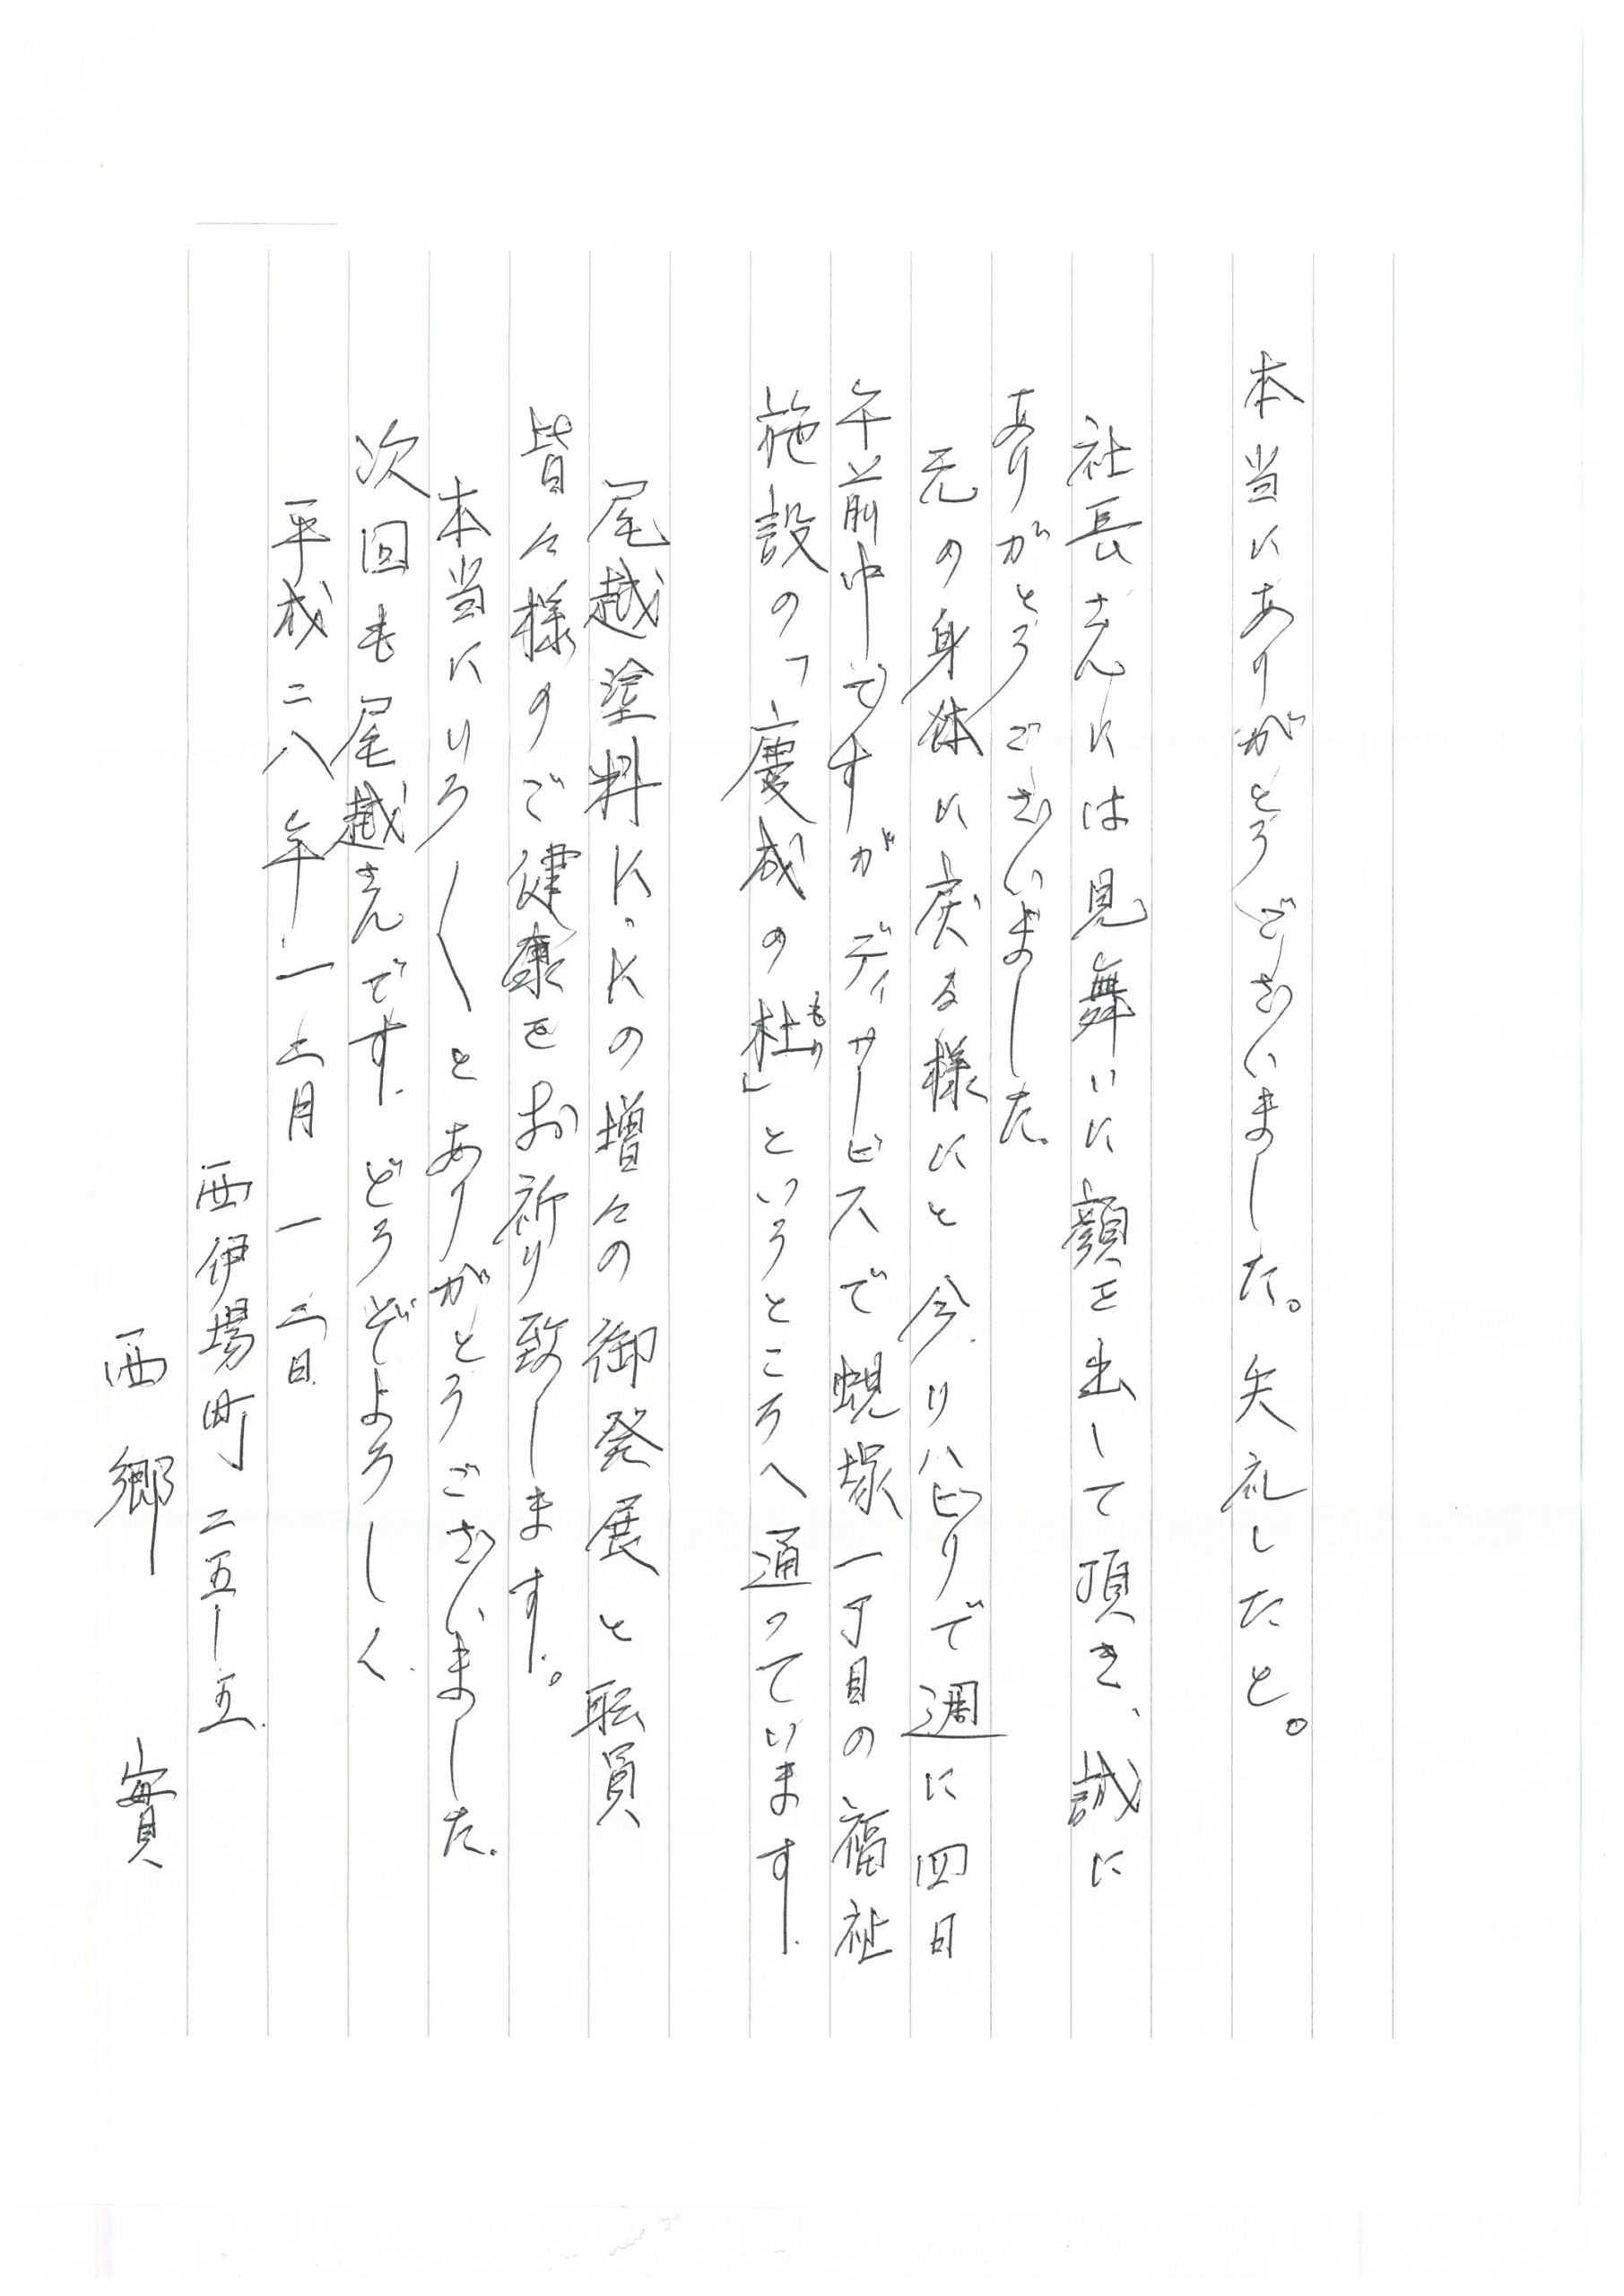 本当にありがとうございました。失礼したと。
社長さんには見舞いに顔を出して頂き、誠に
ありがとうございました。
元の身体に戻る様にと今リハビリで週に四日
午前中ですがディサービスで蜆塚一丁目の福祉
施設の「慶成の杜」というところへ通っています.
もり
尾越塗料K.Kの増々の御発展と職員
皆々様のご健康をお祈り致します。
本当にいろ〱とありがとうございました.
次回も尾越さんです.どうぞよろしく.
平成二八年一二月一二日
西伊場町二五ー五.
西郷 實